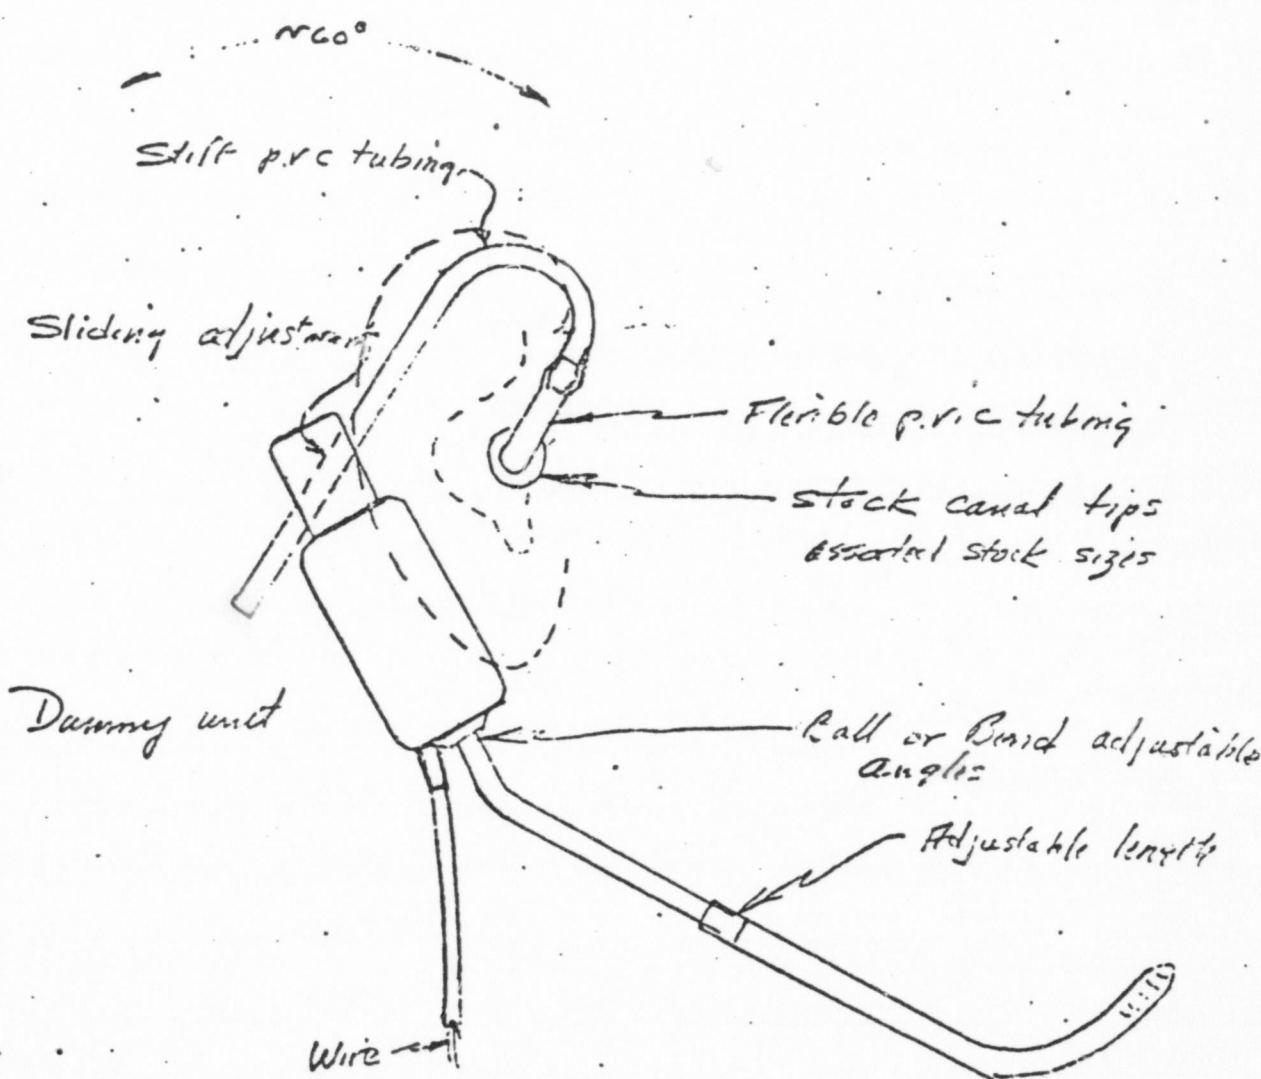 ~60°
Stiff p.v.c tubing
Sliding adjustment
Flexible p.v.c tubing
Stock canal tips
assorted stock sizes
Dummy unit
Ball or Bend adjustable
angles
Adjustable length
Wire